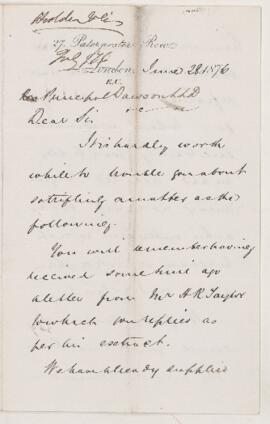 27, Paternoster Row,
London, June 28 1876
E.C.
Principal Dawson LLD
Dear Sir
It is hardly worth
while to trouble you about
so trifling a matter as the
following.
You will remember having
received some time ago
a letter from Mr A R Taylor
to which you replied as
per his extract.
We have already supplied